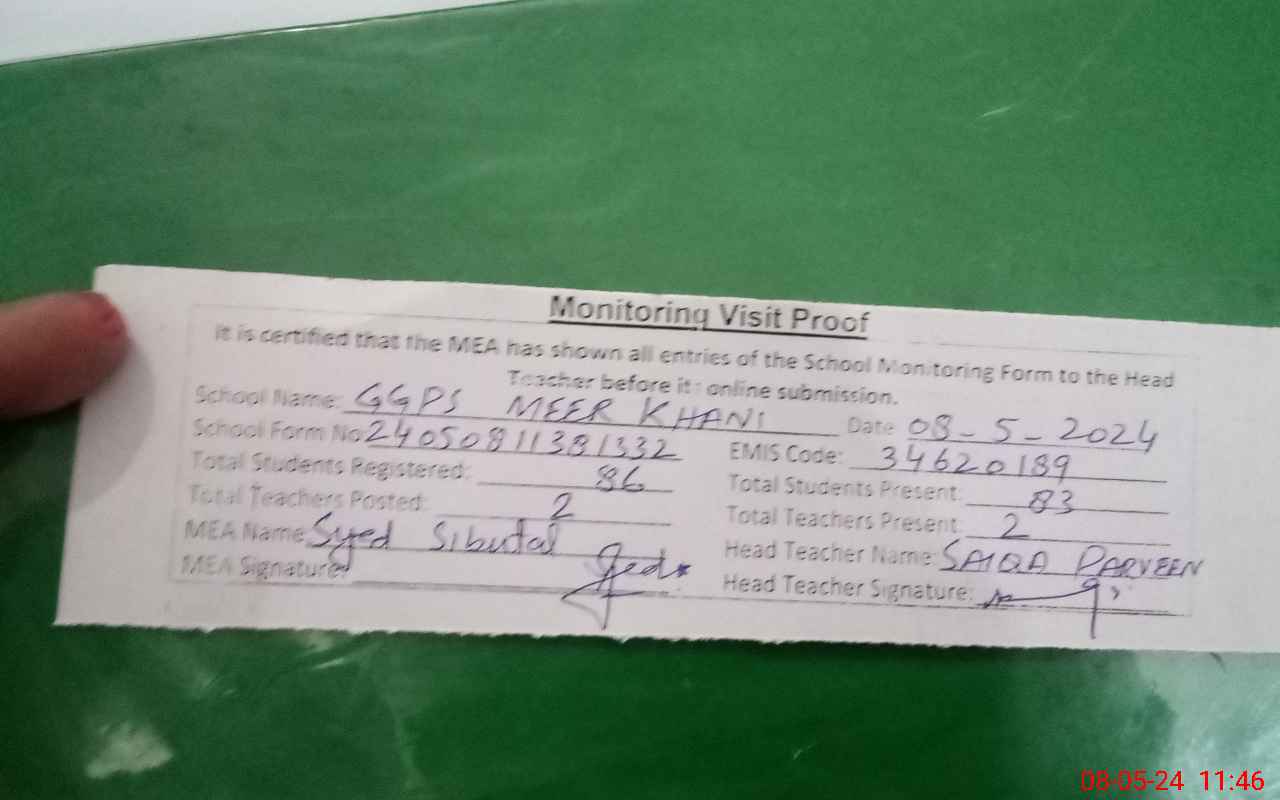 Monitoring Visit Proof
It is certified that the MEA has shown all entries of the School Monitoring Form to the Head
Teacher before its online submission.
School Name: GGPS MEER KHANI Date 08-5-2024
School Form No: 24050811381332 EMIS Code: 34620189
Total Students Registered: 86 Total Students Present: 83
Total Teachers Posted: 2 Total Teachers Present: 2
MEA Name: Syed Sibutal Head Teacher Name: SAIQA PARVEEN
MEA Signature: Head Teacher Signature:
08-05-24 11:46